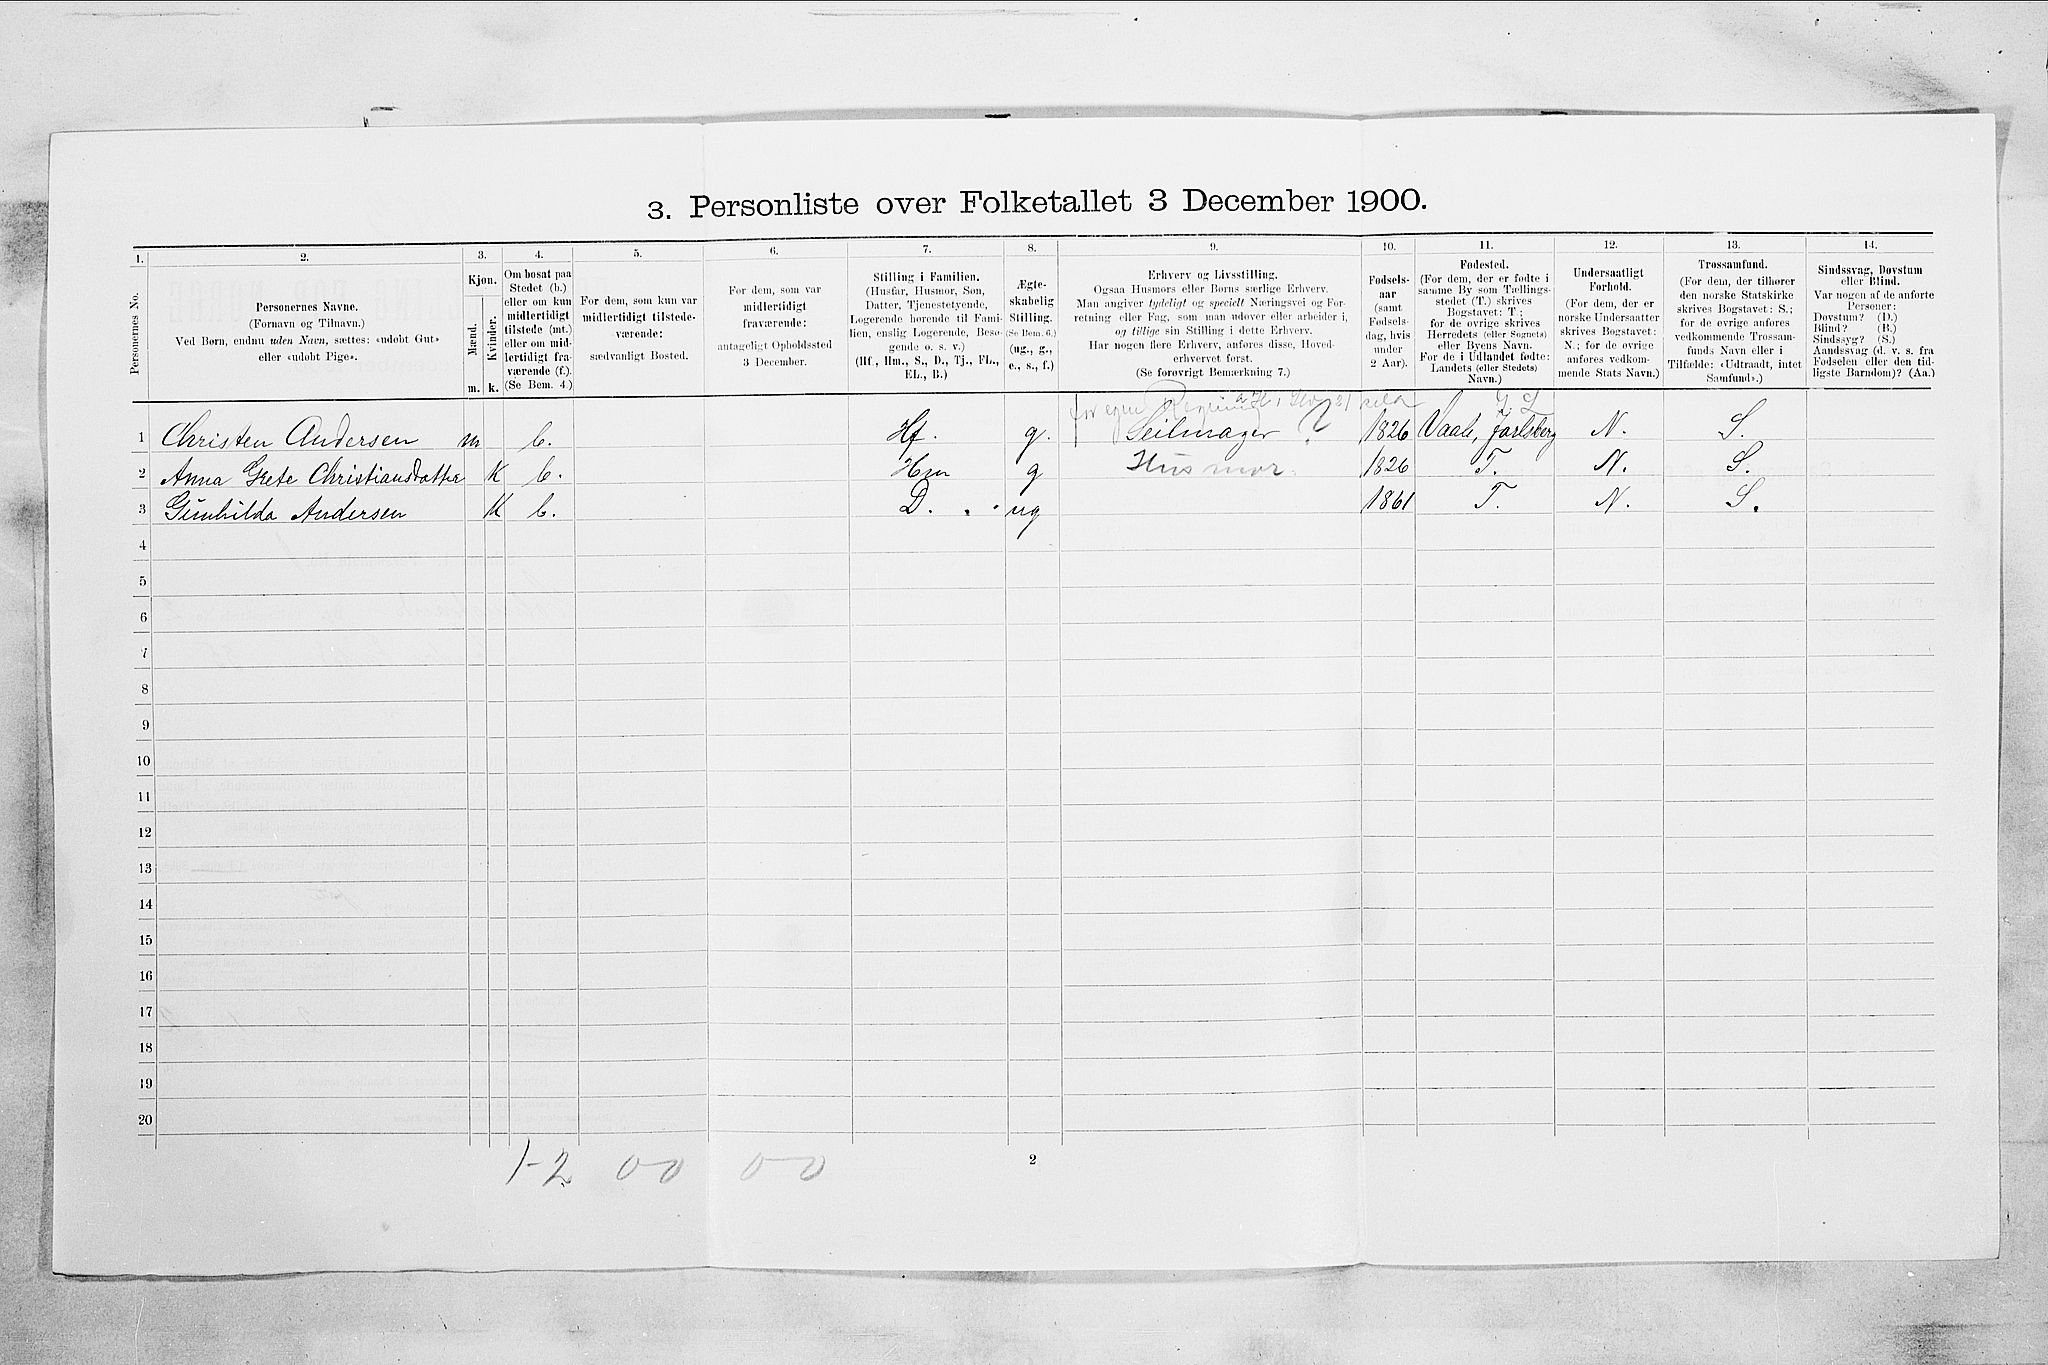 3. Personliste over Folketallet 3 December 1900.
1. 2. 3. 4. 5. 6. 7. 8. 9. 10. 11. 12. 13. 14.
Personernes No.
Personernes Navne.
(Fornavn og Tilnavn.)
Ved Børn, endnu uden Navn, sættes: «udøbt Gut»
eller «udøbt Pige».
Kjøn.
Mænd.
Kvinder.
m. k.
Om bosat paa
Stedet (b.)
eller om kun
midlertidigt
tilstede (mt.)
eller om mid-
lertidigt fra-
værende (f.).
(Se Bem. 4.)
For dem, som kun var
midlertidigt tilstede-
værende:
sædvanligt Bosted.
For dem, som var
midlertidigt
fraværende:
antageligt Opholdssted
3 December.
Stilling i Familien.
(Husfar, Husmor, Søn,
Datter, Tjenestetyende,
Logerende hørende til Fami-
lien, enslig Logerende, Besø-
gende o. s. v.)
(Hf., Hm., S., D., Tj., FL.,
EL., B.)
Ægte-
skabelig
Stilling.
(Se Bem. 6.)
(ug., g.,
e., s., f.)
Erhverv og Livsstilling.
Ogsaa Husmors eller Børns særlige Erhverv.
Man angiver tydeligt og specielt Næringsvei og For-
retning eller Fag, som man udøver eller arbeider i,
og tillige sin Stilling i dette Erhverv.
Har nogen flere Erhverv, anføres disse, Hoved-
erhvervet først.
(Se forøvrigt Bemærkning 7.)
Fødsels-
aar
(samt
Fødsels-
dag, hvis
under
2 Aar).
Fødested.
(For dem, der er fødte i
samme By som Tællings-
stedet (T.) skrives
Bogstavet: T.;
for de øvrige skrives
Herredets (eller Sognets)
eller Byens Navn.
For de i Udlandet fødte:
Landets (eller Stedets)
Navn.)
Undersaatligt
Forhold.
(For dem, der er
norske Undersaatter
skrives Bogstavet:
N.; for de øvrige
anføres vedkom-
mende Stats Navn.)
Trossamfund.
(For dem, der tilhører
den norske Statskirke
skrives Bogstavet: S.;
for de øvrige anføres
vedkommende Trossam-
funds Navn eller i
Tilfælde: «Udtraadt, intet
Samfund».)
Sindssvag, Døvstum
eller Blind.
Var nogen af de anførte
Personer:
Døvstum? (D.)
Blind? (B.)
Sindssyg? (S.)
Aandssvag (d. v. s. fra
Fødselen eller den tid-
ligste Barndom)? (Aa.)
for egen Regning
1 Christen Andersen m b. Hf. g. Seilmager ? 1826 Vaale, Jarlsberg N. S.
2 Anna Grete Christiansdatter K b. Hm g Husmor. 1826 T. N. S.
3 Gunhilda Andersen K b. D. ug 1861 T. N. S.
4
5
6
7
8
9
10
11
12
13
14
15
16
17
18
19
20
1-2 0-0 0-0
2